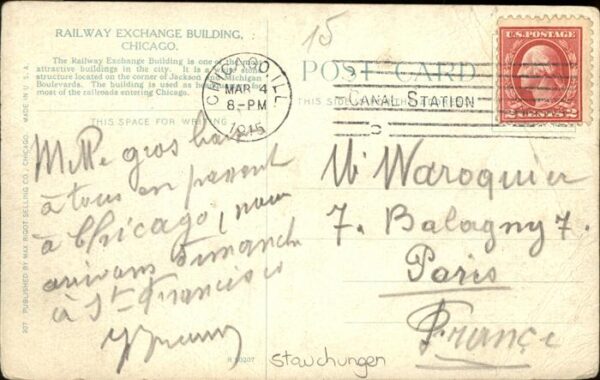 RAILWAY EXCHANGE BUILDING,
CHICAGO.
The Railway Exchange Building is one of the most
attractive buildings in the city. It is a
structure located on the corner of Jackson and Michigan
Boulevards. The building is used as
most of the railroads entering Chicago.
THIS SPACE FOR WRITING
15
POST CARD
THIS SIDE
CHICAGO, ILL
MAR 4
8-PM
1915
CANAL STATION
U.S. POSTAGE
2 CENTS 2
Mille gros
à tous en passant
à Chicago, nous
arrivons Dimanche
à St Francisco
M Waroquier
7. Balagny 7.
Paris
France
207 PUBLISHED BY MAX RIGOT SELLING CO., CHICAGO. MADE IN U.S.A.
Stauchungen